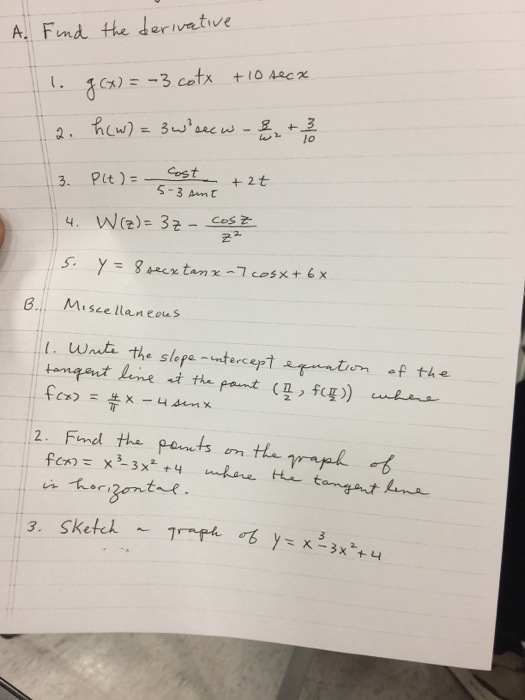 A. Find the derivative
1. g(x) = -3 cotx + 10 sec x
2. h(w) = 3w³ sec w - 8/w² + 3/10
3. P(t) = cost/(5-3 sint) + 2t
4. W(z) = 3z - cos z/z²
5. y = 8 secx tanx - 7 cosx + 6x
B. Miscellaneous
1. Write the slope-intercept equation of the
tangent line at the point (π/2, f(π/2)) where
f(x) = 4/π x - 4 sinx
2. Find the points on the graph of
f(x) = x³-3x²+4 where the tangent line
is horizontal.
3. Sketch a graph of y = x³-3x²+4